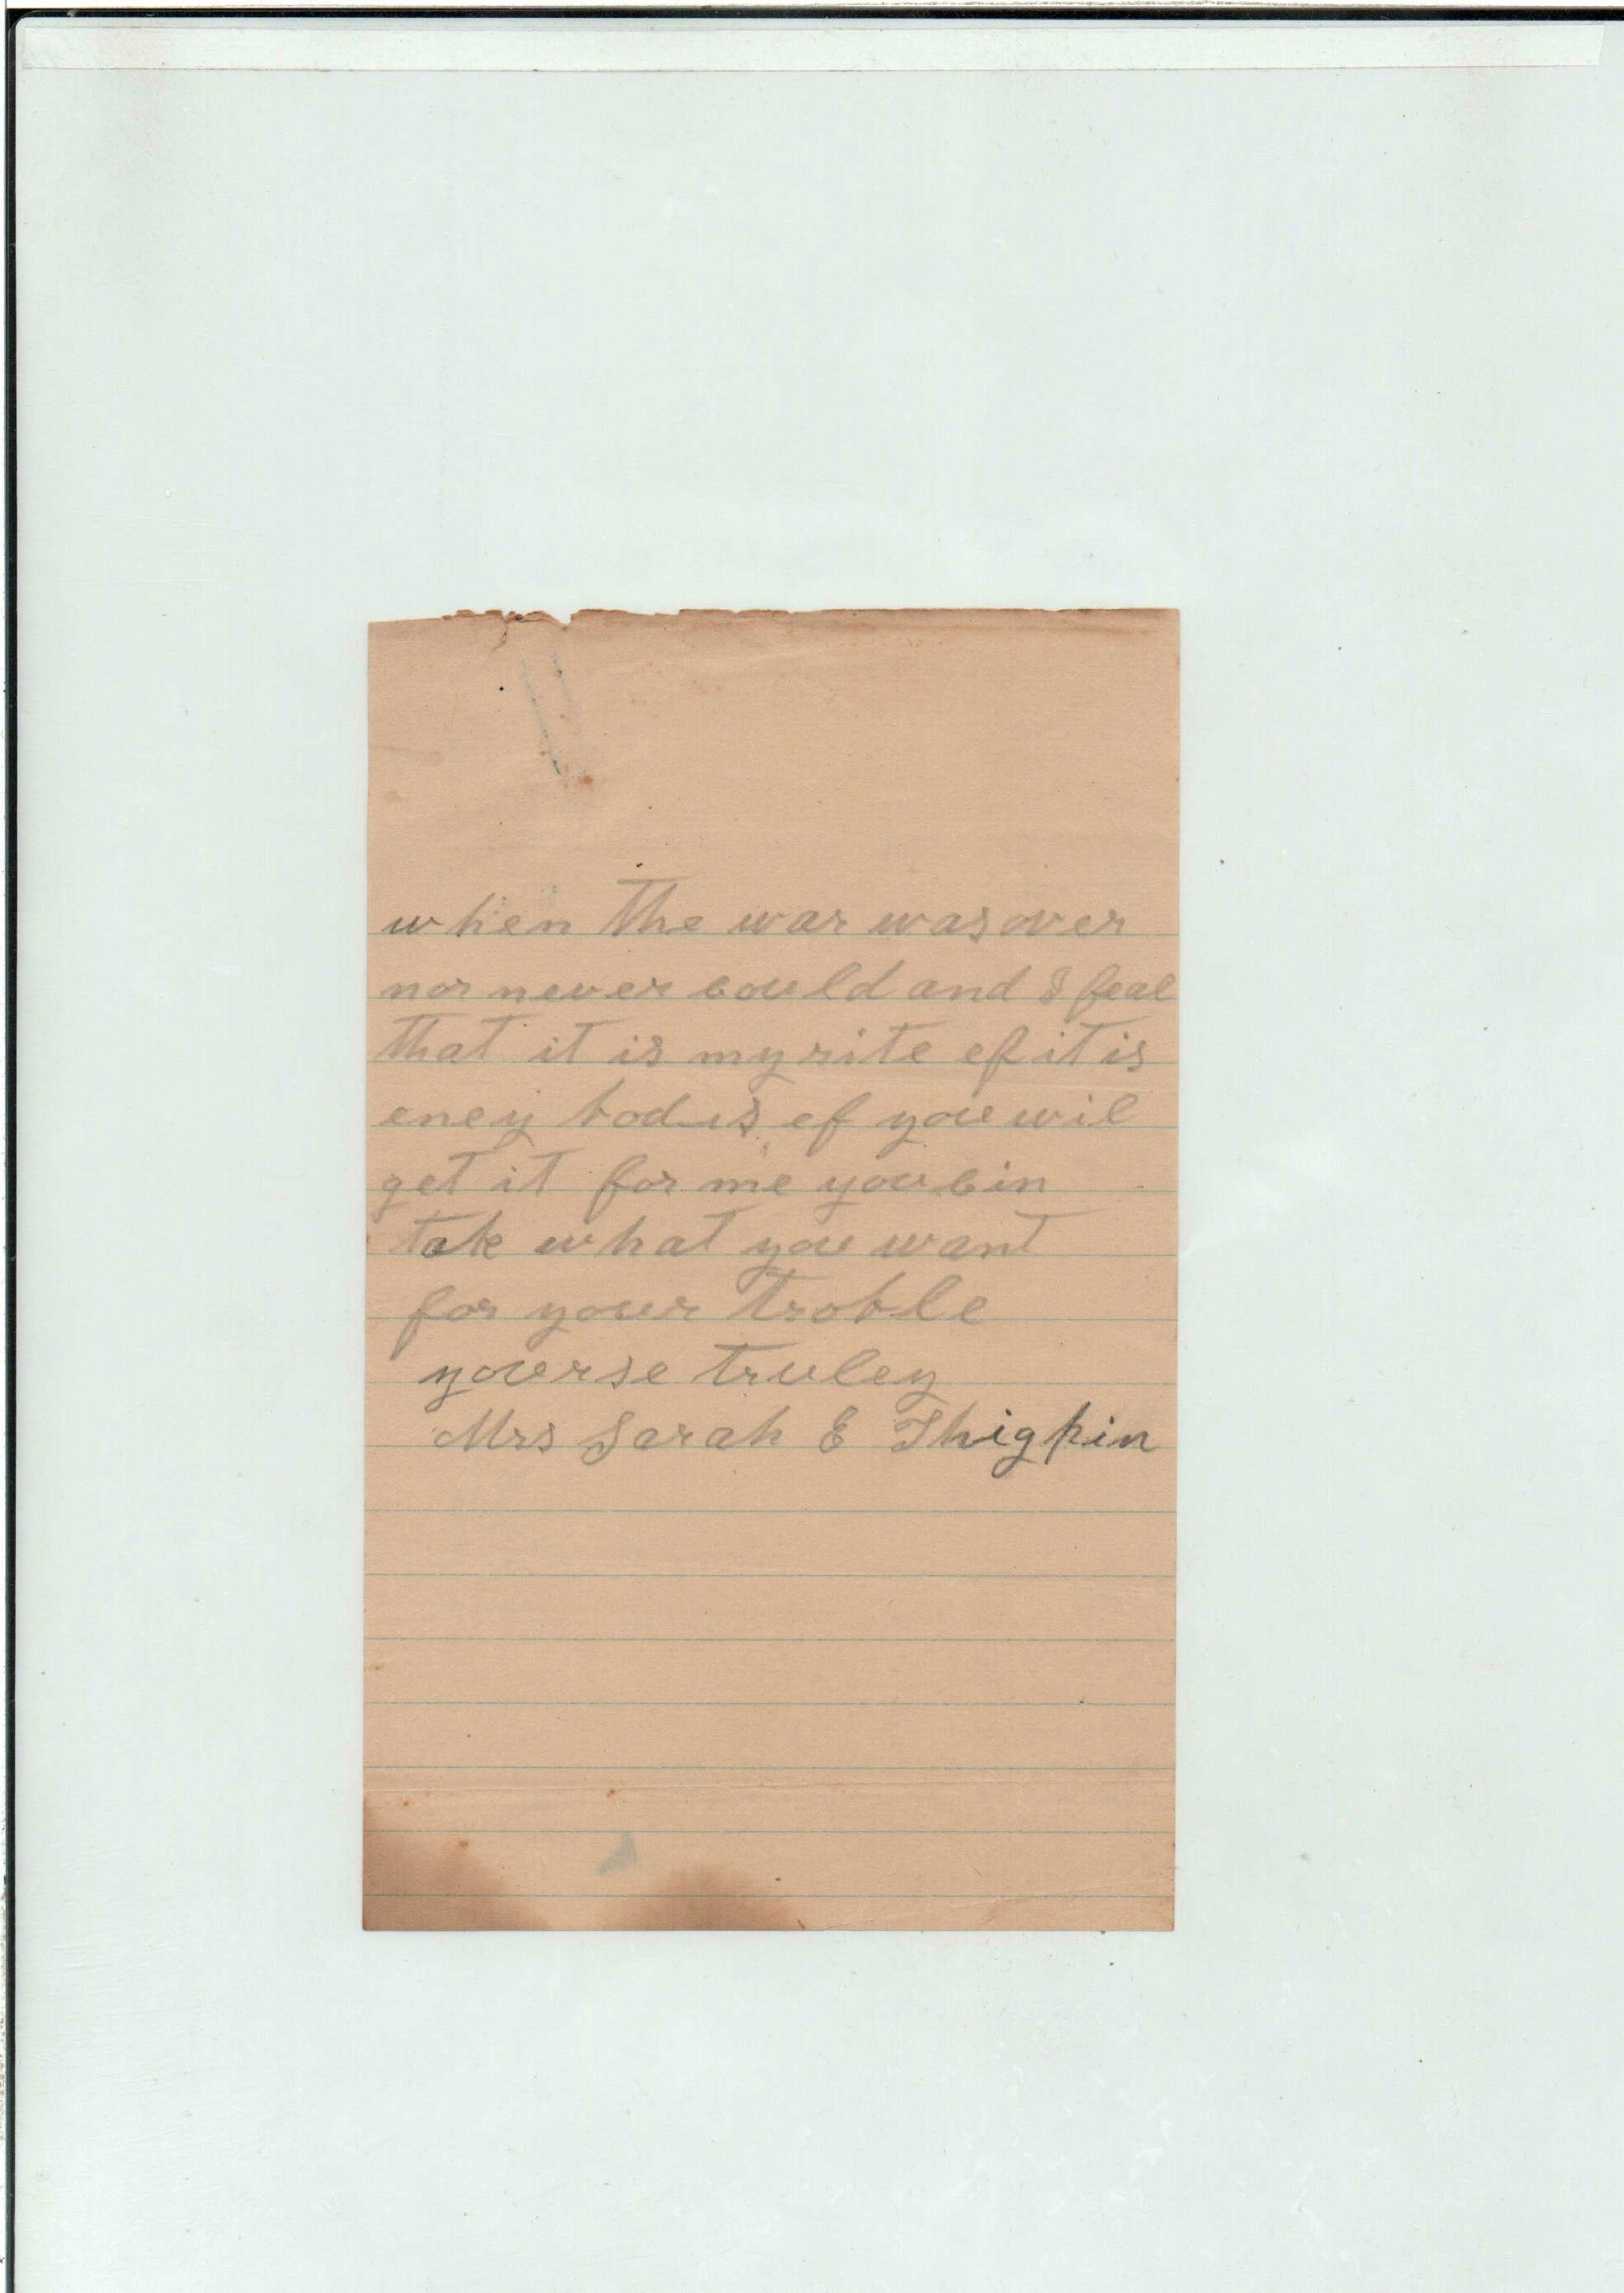 when the war was over
nor never could and I feal
that it is my rite ef it is
eney bodis ef you wil
get it for me you cin
take what you want
for your troble
yourse truley
Mrs Sarah E Thigpin